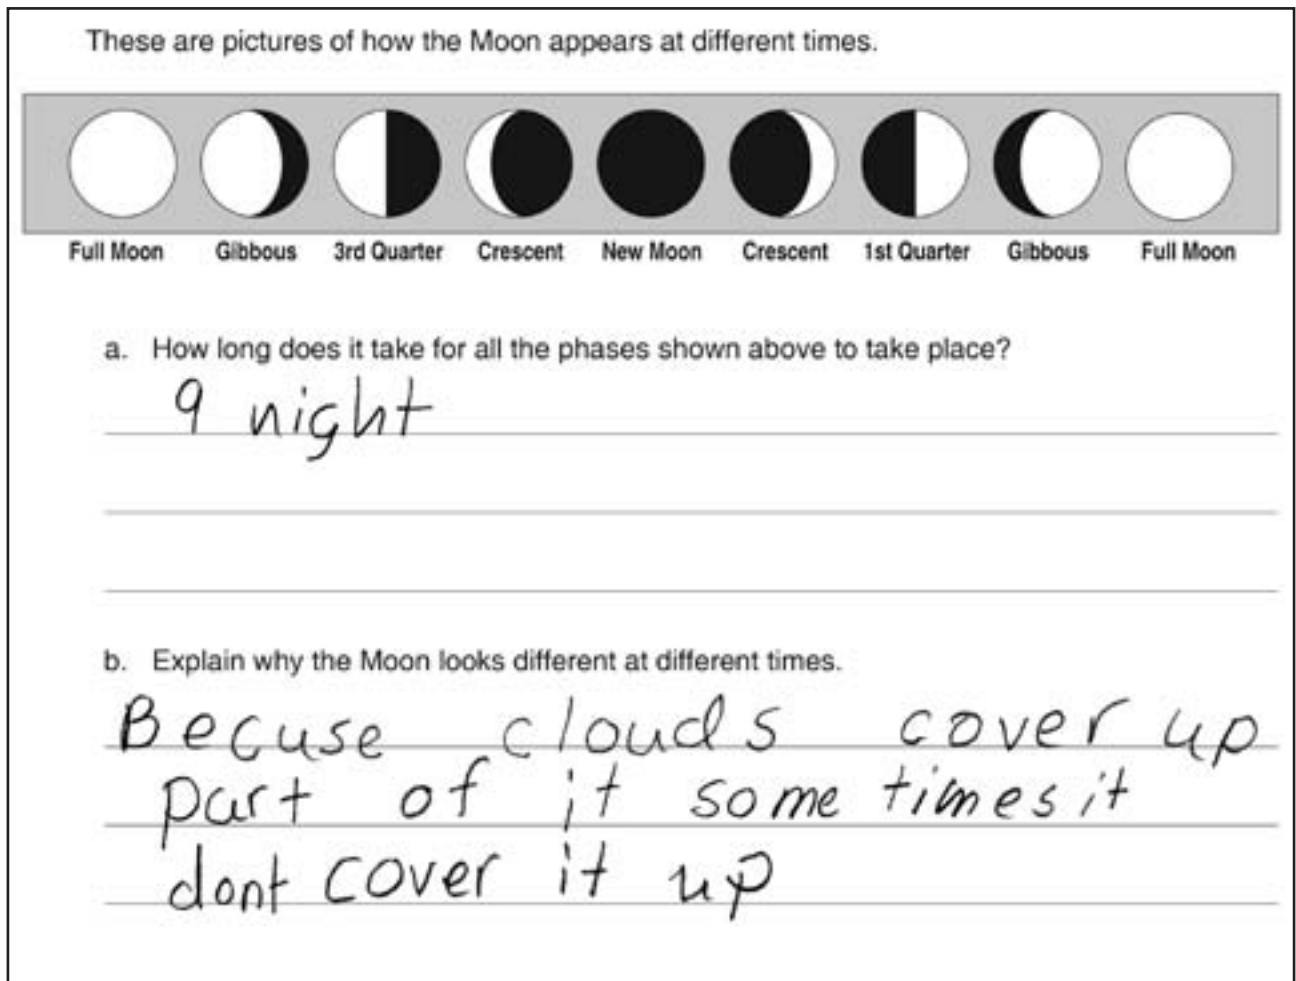 These are pictures of how the Moon appears at different times.
Full Moon Gibbous 3rd Quarter Crescent New Moon Crescent 1st Quarter Gibbous Full Moon
a. How long does it take for all the phases shown above to take place?
9 night
b. Explain why the Moon looks different at different times.
Becuse clouds cover up
part of it some times it
dont cover it up